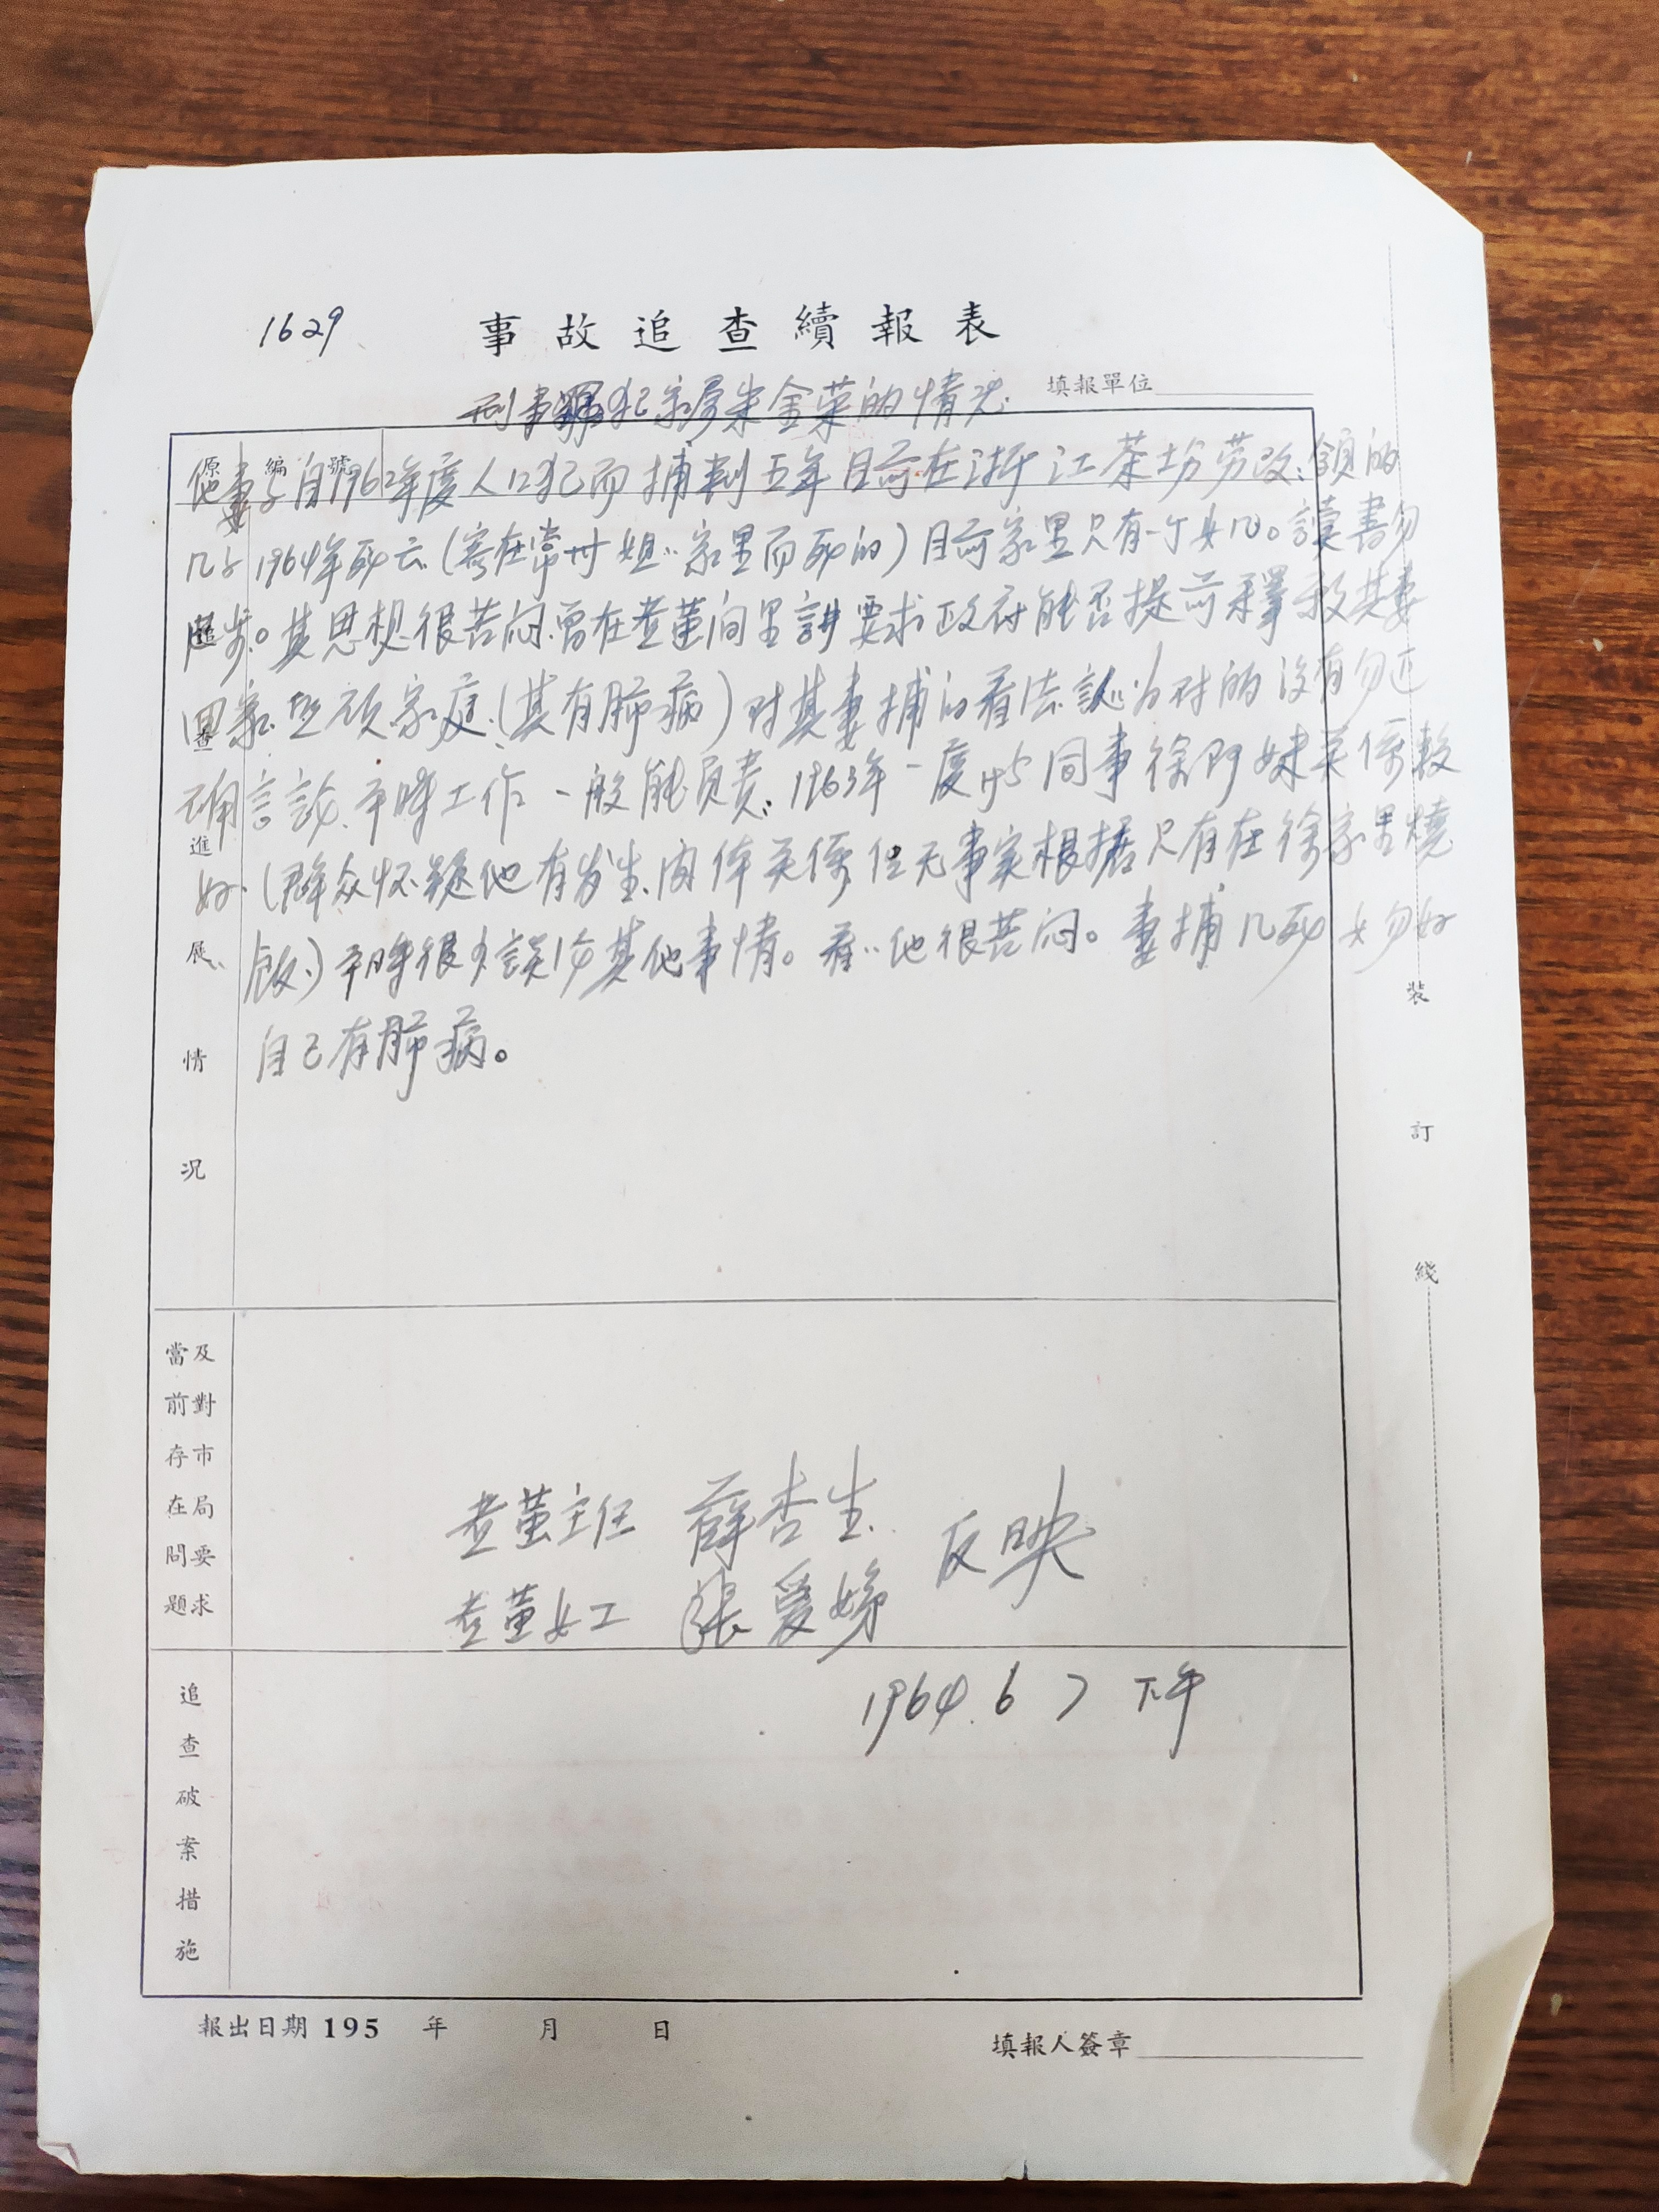 1629
事故追查續報表
填報單位
刑事犯家屡朱金荣的情况
原編號
他妻子自1962年度人口犯而捕判五年目前在浙江茶坊劳改、領的
几子1964年死去(寄在常州姐〃家里而死的)目前家里只有一丁女几。讀書勿
進步。其思想很苦闷、曾在老董间里講要求政府能否提前釋放其妻
回家照顾家庭、(其有肺病)对其妻捕的看法認为对的没有勿正
确言論、平時工作一般能負責、1963年一度与同事徐阿妹关係較
好、(群众怀疑他有发生肉体关係但无事实根据只有在徐家里燒
飯、)平時很少談论其他事情。看〃他很苦闷。妻捕几死女勿好
自己有肺病。
追查進展情況
裝訂綫
當前存在問題
及對市局要求
老董主任 薛杏生
反映
老董女工 張爱娣
1964.6 7 下午
追查破案措施
報出日期195 年 月 日
填報人簽章